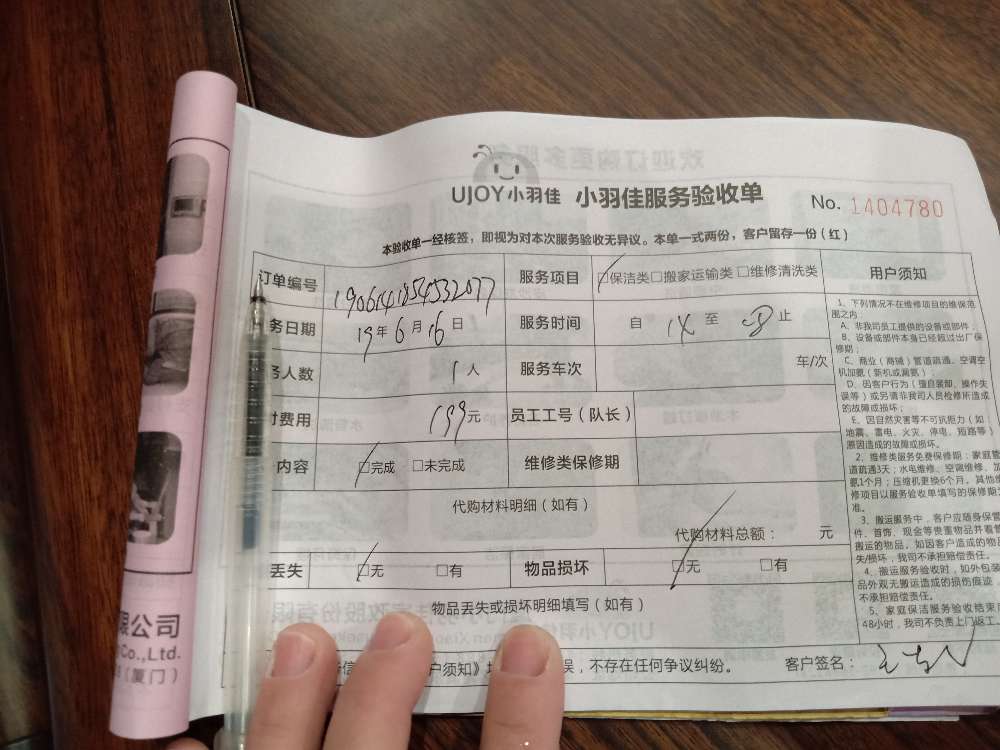 UJOY小羽佳 小羽佳服务验收单 No. 1404780
本验收单一经核签，即视为对本次服务验收无异议。本单一式两份，客户留存一份（红）
订单编号 服务项目 □保洁类□搬家运输类□维修清洗类 用户须知
务日期 19年6月16日 服务时间 自 14 至 18 止
务人数 1人 服务车次 车/次
付费用 199元 员工工号（队长）
内容 □完成 □未完成 维修类保修期
代购材料明细（如有）
代购材料总额： 元
丢失 □无 □有 物品损坏 □无 □有
物品丢失或损坏明细填写（如有）
户须知》
误，不存在任何争议纠纷。 客户签名：
1、下列情况不在维修项目的维保范
围之内
A、非我司员工提供的设备或部件；
B、设备或部件本身已经超过出厂保
修期；
C、商业（商铺）管道疏通、空调空
机加氨（新机或漏氨）；
D、因客户行为（擅自装卸、操作失
误等）或另请非我司人员检修所造成
的故障或损坏；
E、因自然灾害等不可抗拒力（如
地震、雷电、火灾、停电、短路等）
原因造成的故障或损坏。
2、维修类服务免费保修期：家庭管
道疏通3天；水电维修、空调维修、加
氨1个月；压缩机更换6个月。其他维
修项目以服务验收单填写的保修期为
准。
3、搬运服务中，客户应随身保管
件、首饰、现金等贵重物品并看管
搬运的物品。如因客户造成的物品
失/损坏，我司不承担赔偿责任。
4、搬运服务验收时，如外包装
品外观无搬运造成的损伤痕迹
不承担赔偿责任。
5、家庭保洁服务验收结束
48小时，我司不负责上门返工。
限公司
Co.,Ltd.
（厦门）